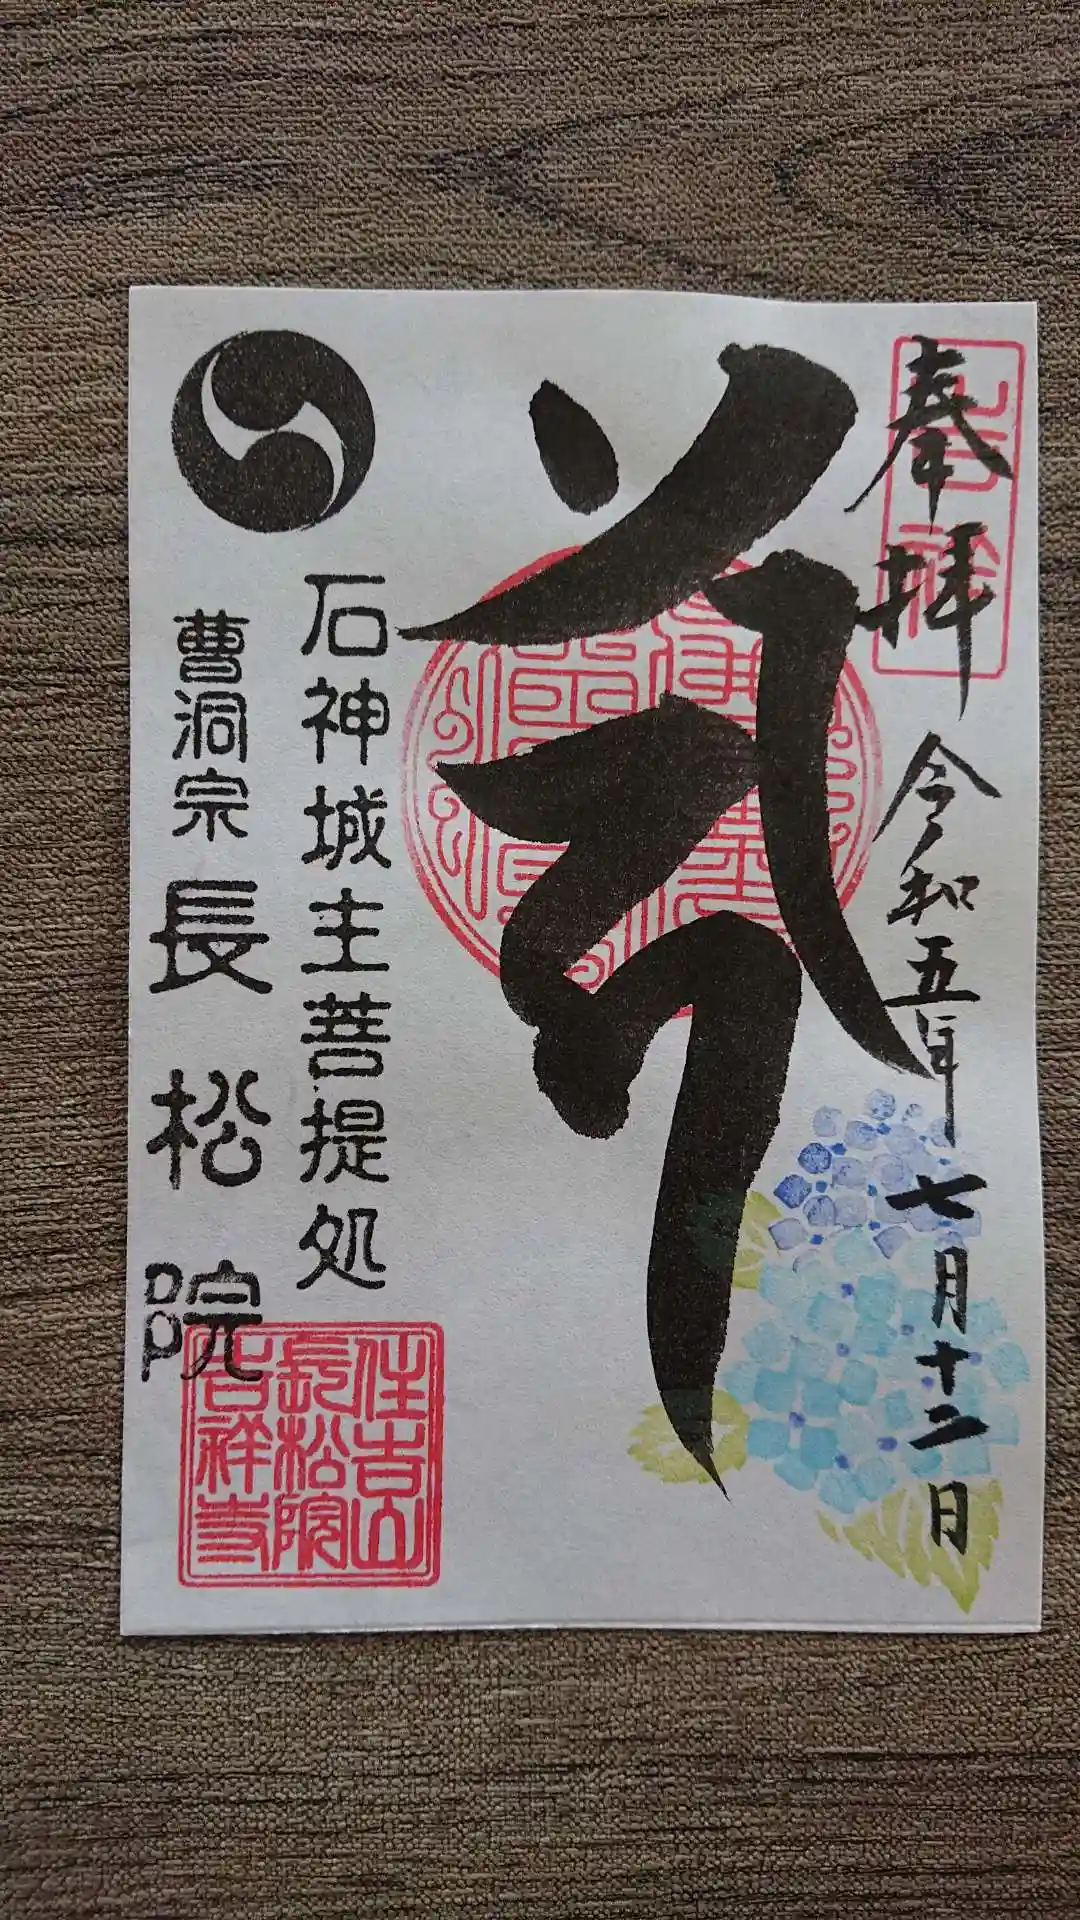 奉拝
吉祥
令和五年
七月十二日
石神城主菩提処
曹洞宗
長松院
住吉山
長松院
吉祥寺